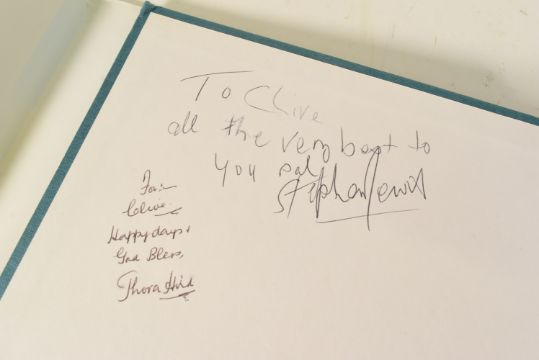 To Clive
all the very best to
you pal
Stephen Lewis
For
Clive.
Happy days &
God Bless,
Thora Hird